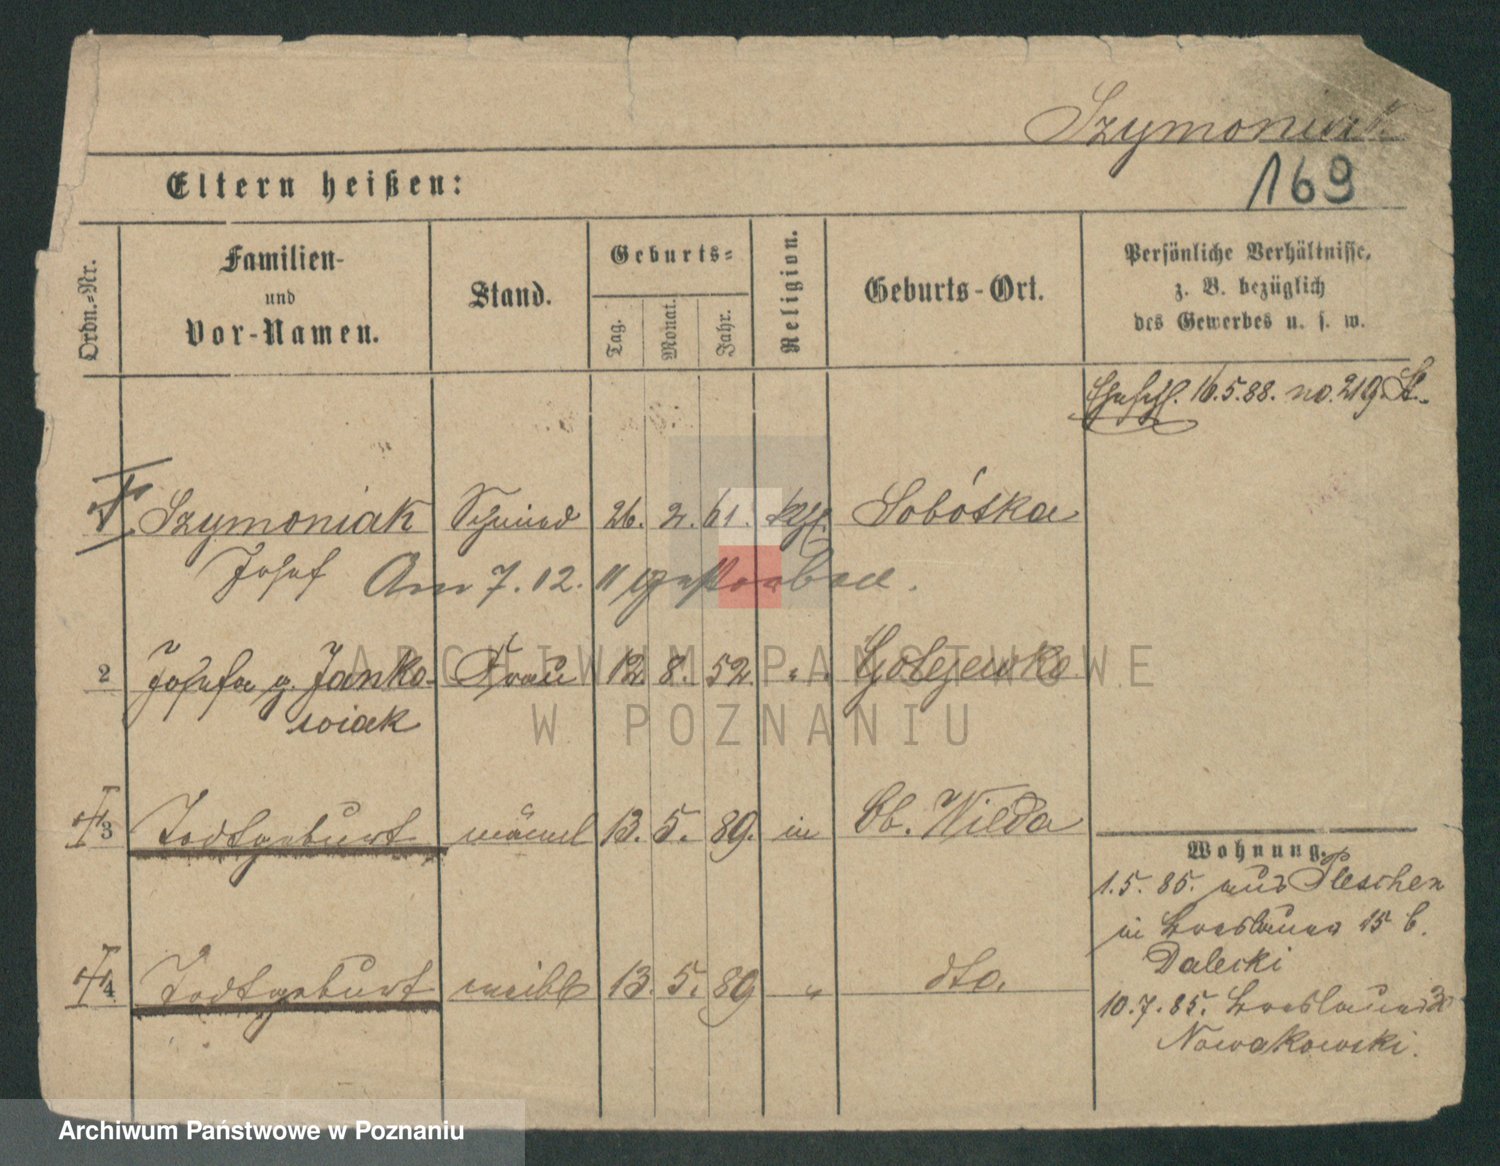 Szymoniak
169
Eltern heißen:
Ordn.-Nr.
Familien-
und
Vor-Namen.
Stand.
Geburts-
Tag.
Monat.
Jahr.
Religion.
Geburts-Ort.
Persönliche Verhältnisse,
z. B. bezüglich
des Gewerbes u. s. w.
16.5.88. no. 219 St.
Szymoniak Schmied 26. 2. 61. kth. Sobótka
Josef Am 7. 12. 11 gestorben.
2 Josefa g. Janko- Frau 12. 8. 52. " Golejewko
wiak
3 Todtgeburt männl 13. 5. 89. in Ob. Wilda
4 Todtgeburt weibl 13. 5. 89 " dto.
Wohnung.
1.5.85. aus Pleschen
in Breslauer 15 b.
Dalecki
10.7.85. Breslauer 30
Nowakowski.
ARCHIWUM PAŃSTWOWE
W POZNANIU
Archiwum Państwowe w Poznaniu